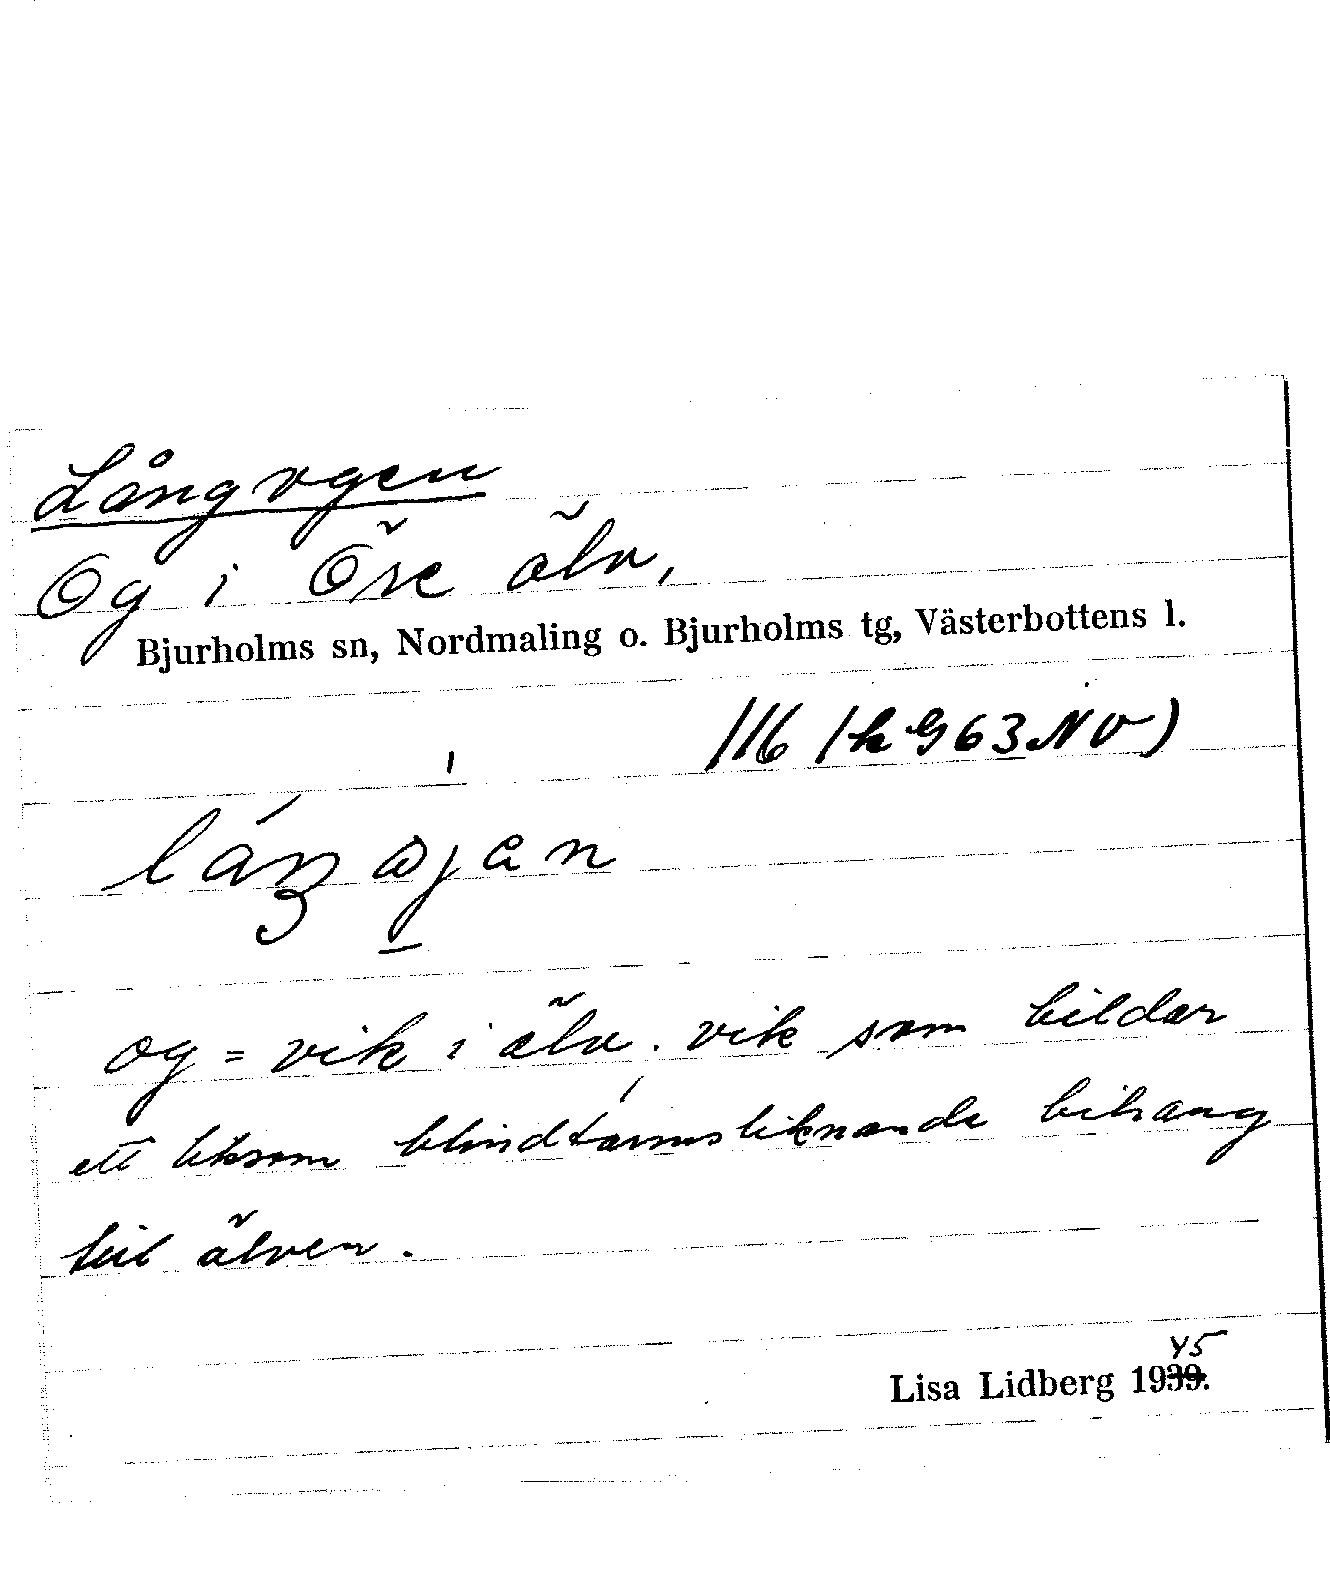 Långogen
Og i Öre älv,
Bjurholms sn, Nordmaling o. Bjurholms tg, Västerbottens l.
116 (k G63NV)
og = vik i älv. vik som bildar
ett liksom blindtarmsliknande bihang
till älven.
45
Lisa Lidberg 1939.